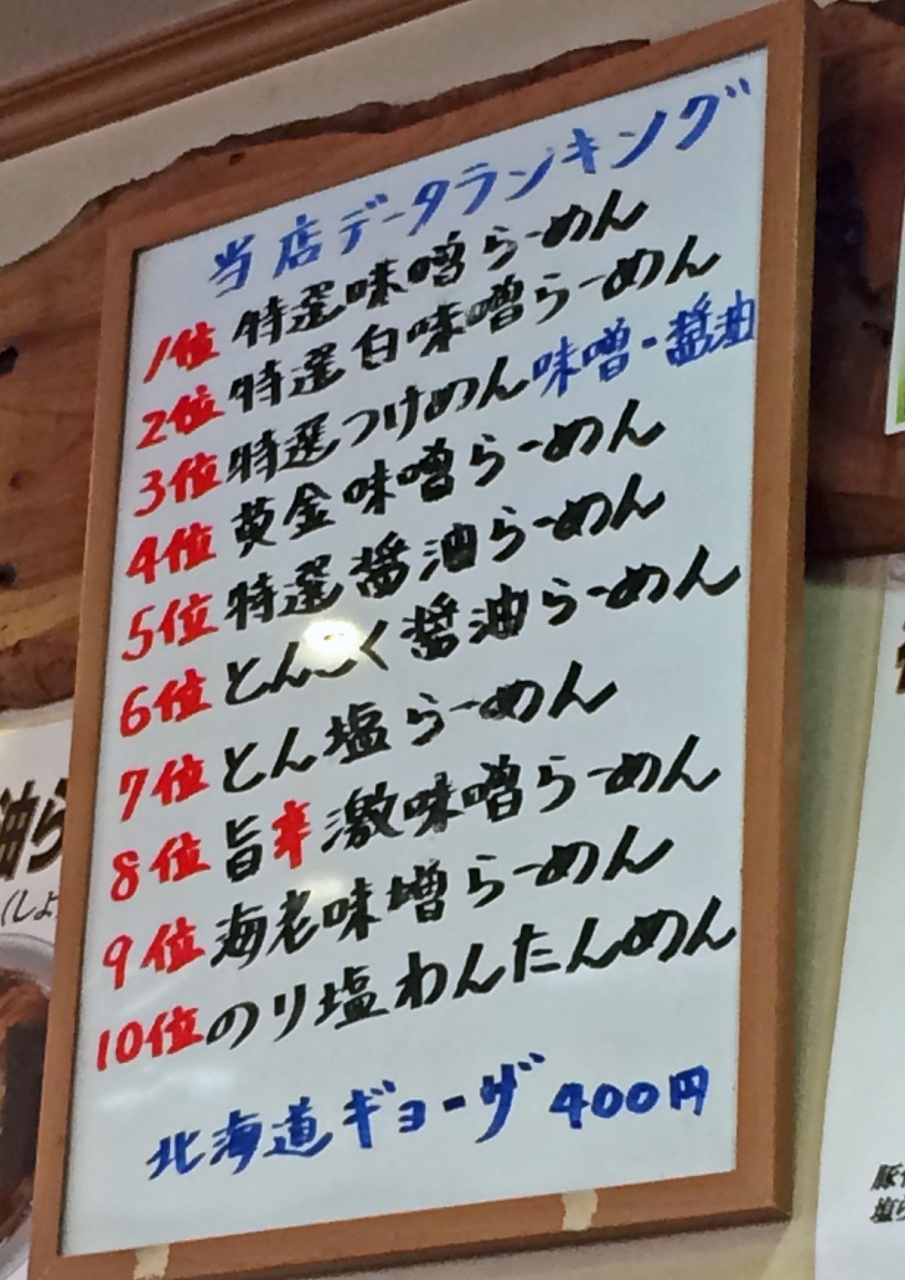 当店データランキング
1位 特選味噌らーめん
2位 特選白味噌らーめん
3位 特選つけめん 味噌・醤油
4位 黄金味噌らーめん
5位 特選醤油らーめん
6位 とんこく醤油らーめん
7位 とん塩らーめん
8位 旨辛激味噌らーめん
9位 海老味噌らーめん
10位 のり塩わんたんめん
北海道ギョーザ 400円
油ら
(しょ